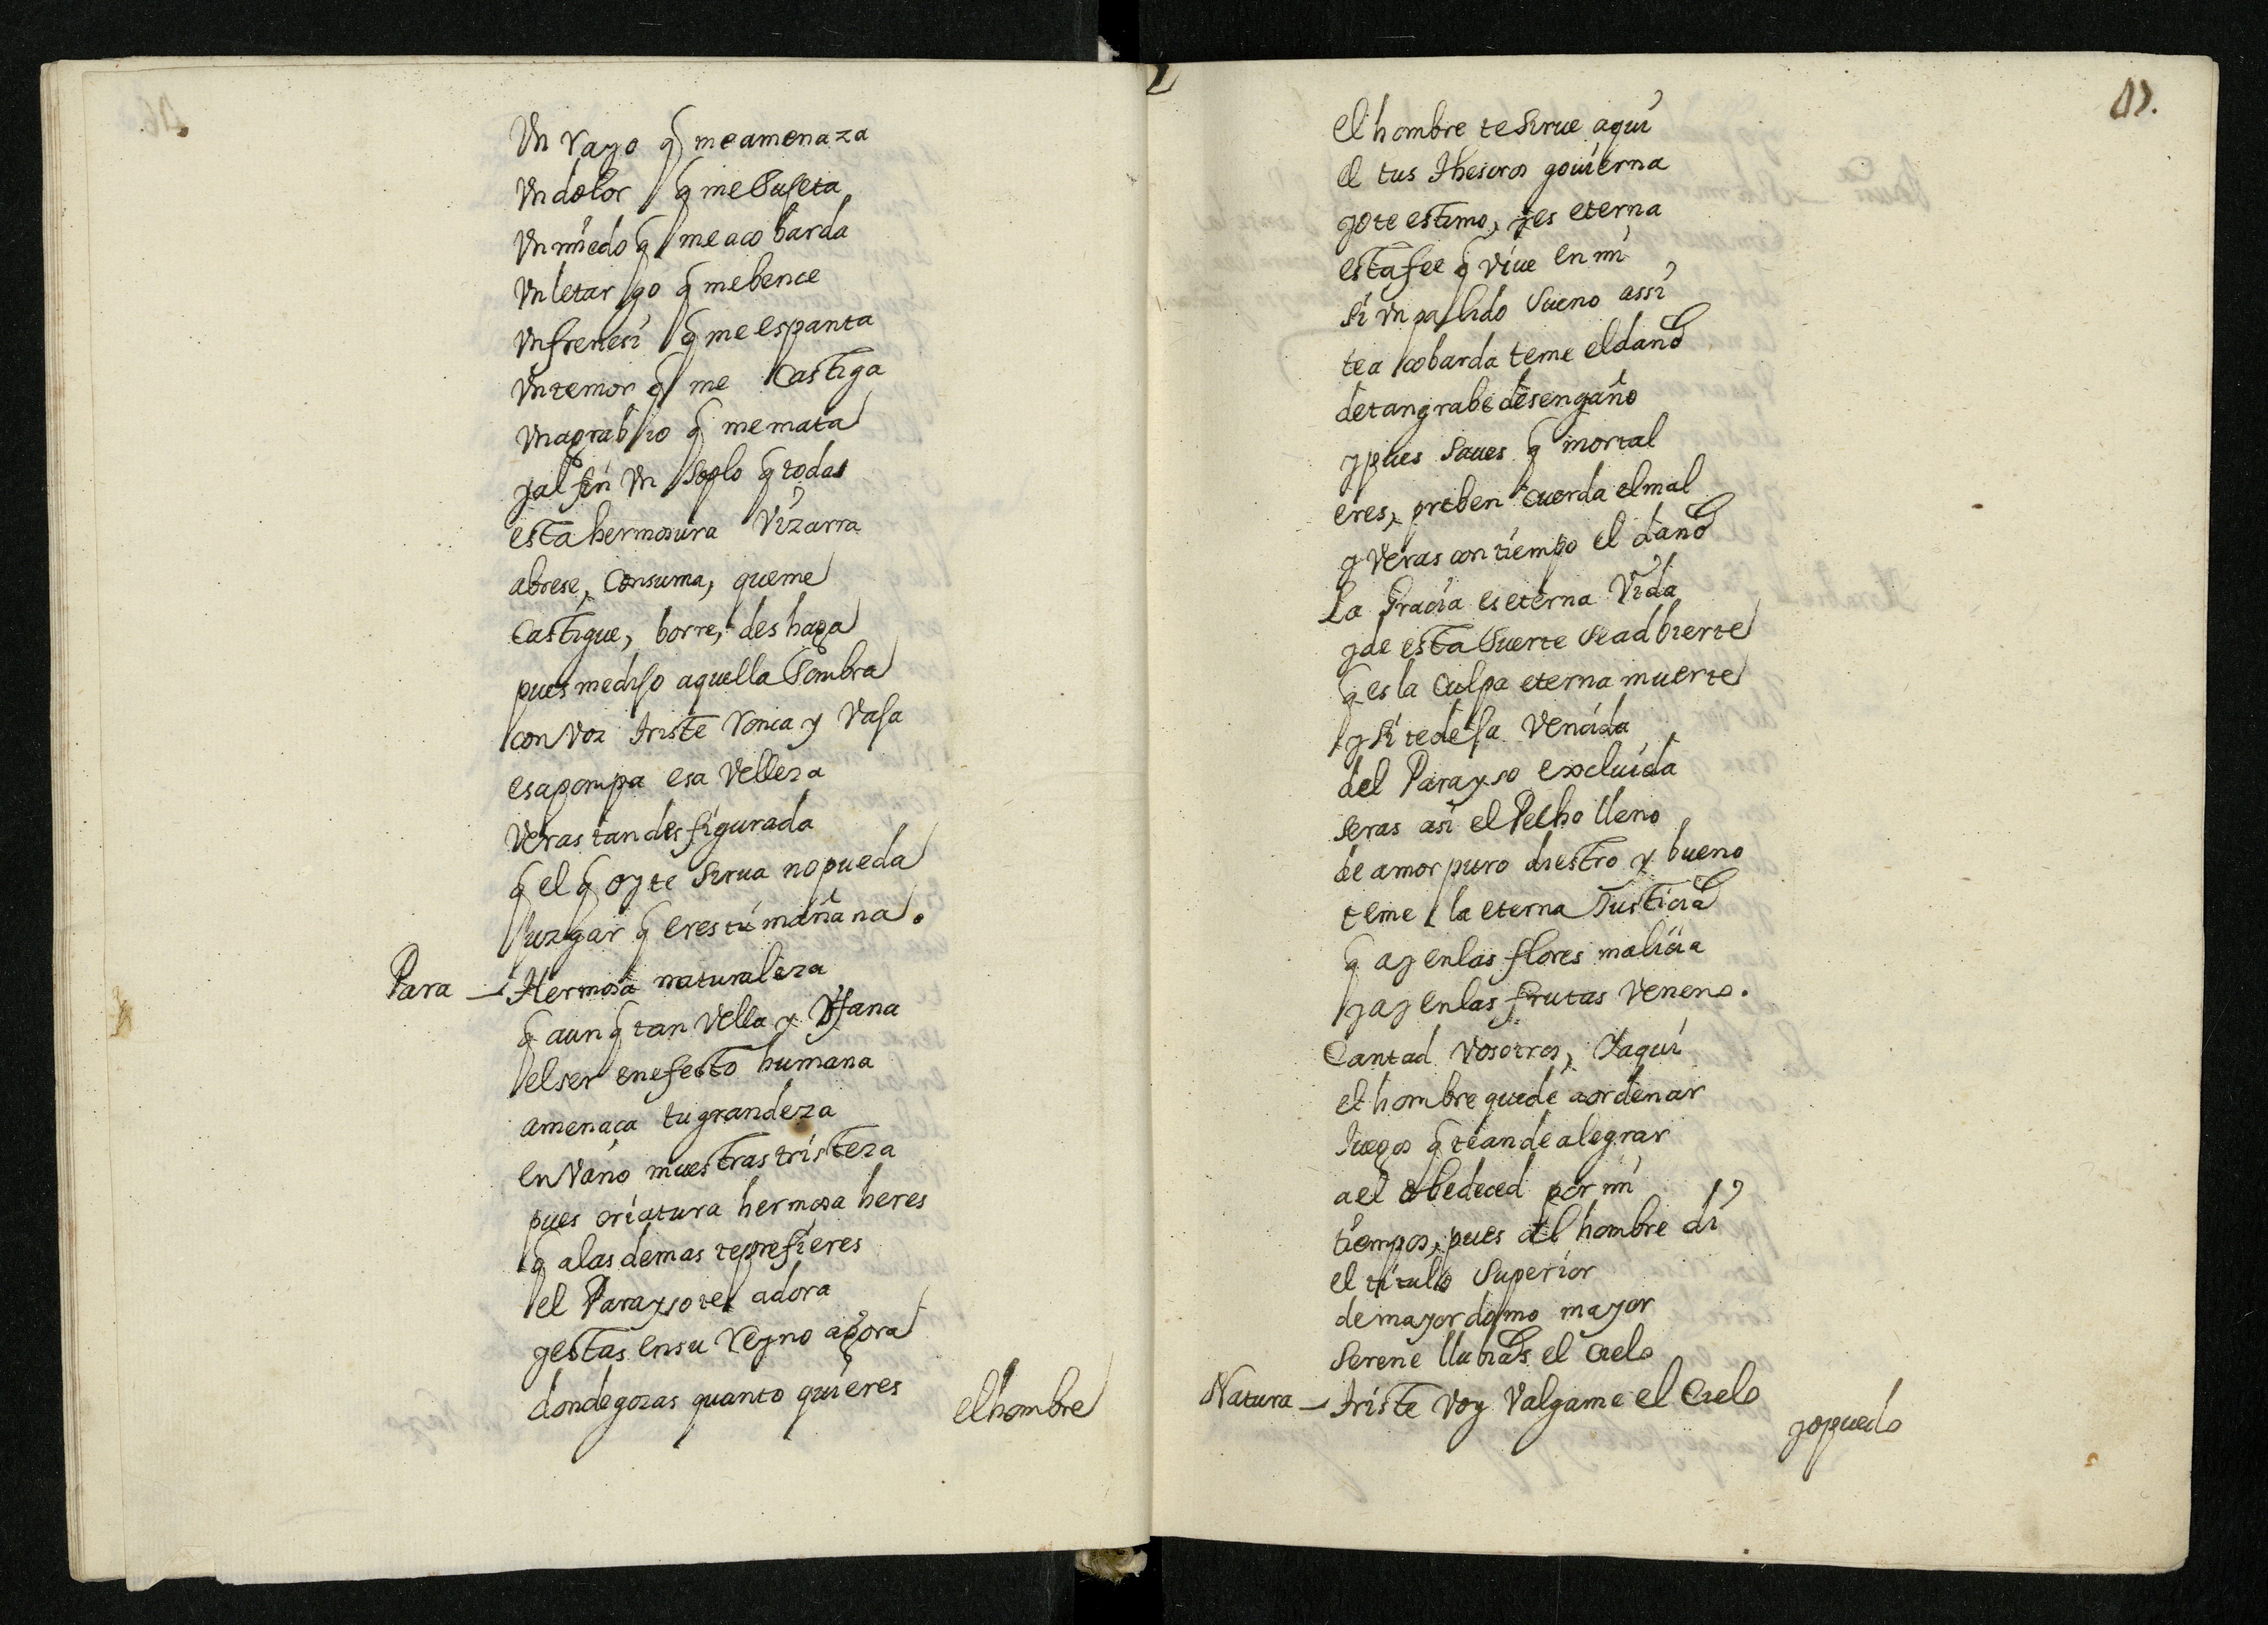 Vn rayo q̃ me amenaza
Vn dolor q̃ me Sujeta
Vn miedo q̃ me acobarda
Vn letargo q̃ me bence
Vn frenesi q̃ me espanta
Vn temor q̃ me Castiga
Vn agrabio q̃ me mata
y al fin Vn soplo q̃ todas
esta hermosura Vizarra
abrese, Consuma, queme
Castigue, borre, deshaga
pues me dijo aquella Sombra
con Voz triste ronca y Vaja
esa pompa esa Velleza
Veras tan desfigurada
q̃ el q̃ oy te Sirua no pueda
Juzgar q̃ eres tú mañana.
Para — Hermosa naturaleza
q̃ aunq̃ tan Vella y Vfana
el ser en efecto humana
amenaça tu grandeza
en Vano muestras tristeza
pues criatura hermosa heres
q̃ a las demas te prefieres
el Parayso te adora
y estas en su Reyno agora
donde gozas quanto quieres
el hombre
47.
el hombre te Sirue aqui
el tus thesoros gouierna
yo te estimo, y es eterna
esta fee q̃ viue en mi
Si Vn palido Sueno assi
te acobarda teme el dano
de tan grabe desengaño
y pues Saues q̃ mortal
eres, preben cuerda el mal
y Veras con tiempo el dano
La Gracia es eterna Vida
y de esta Suerte Se adbierte
q̃ es la Culpa eterna muerte
y Si te deja Vencida
del Parayso excluida
Seras asi el Pecho lleno
de amor puro diestro y bueno
teme la eterna Justicia
q̃ ay en las flores malicia
y ay en las frutas Veneno.
Cantad Vosotros, Y aqui
el hombre quede a ordenar
Juegos q̃ te an de alegrar
a el obedeced por mi
tiempos, pues al hombre di
el titulo Superior
de mayordomo mayor
Serene llubias el Cielo
Natura — triste Voy Valgame el Cielo
yo puedo